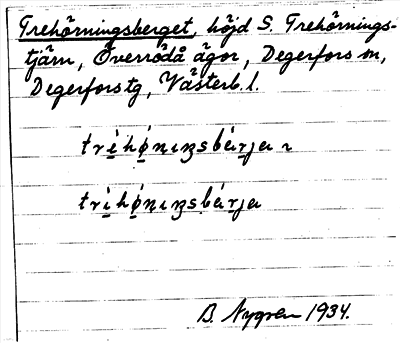 Trehörningsberget, höjd S. Trehörnings-
tjärn, Överrödå ägor, Degerfors sn,
Degerfors tg, Västerb. l.
trìhǿṇıṇsbä́rja ɿ
trìhǿṇıṇsbä́rja
B. Nygren 1934.